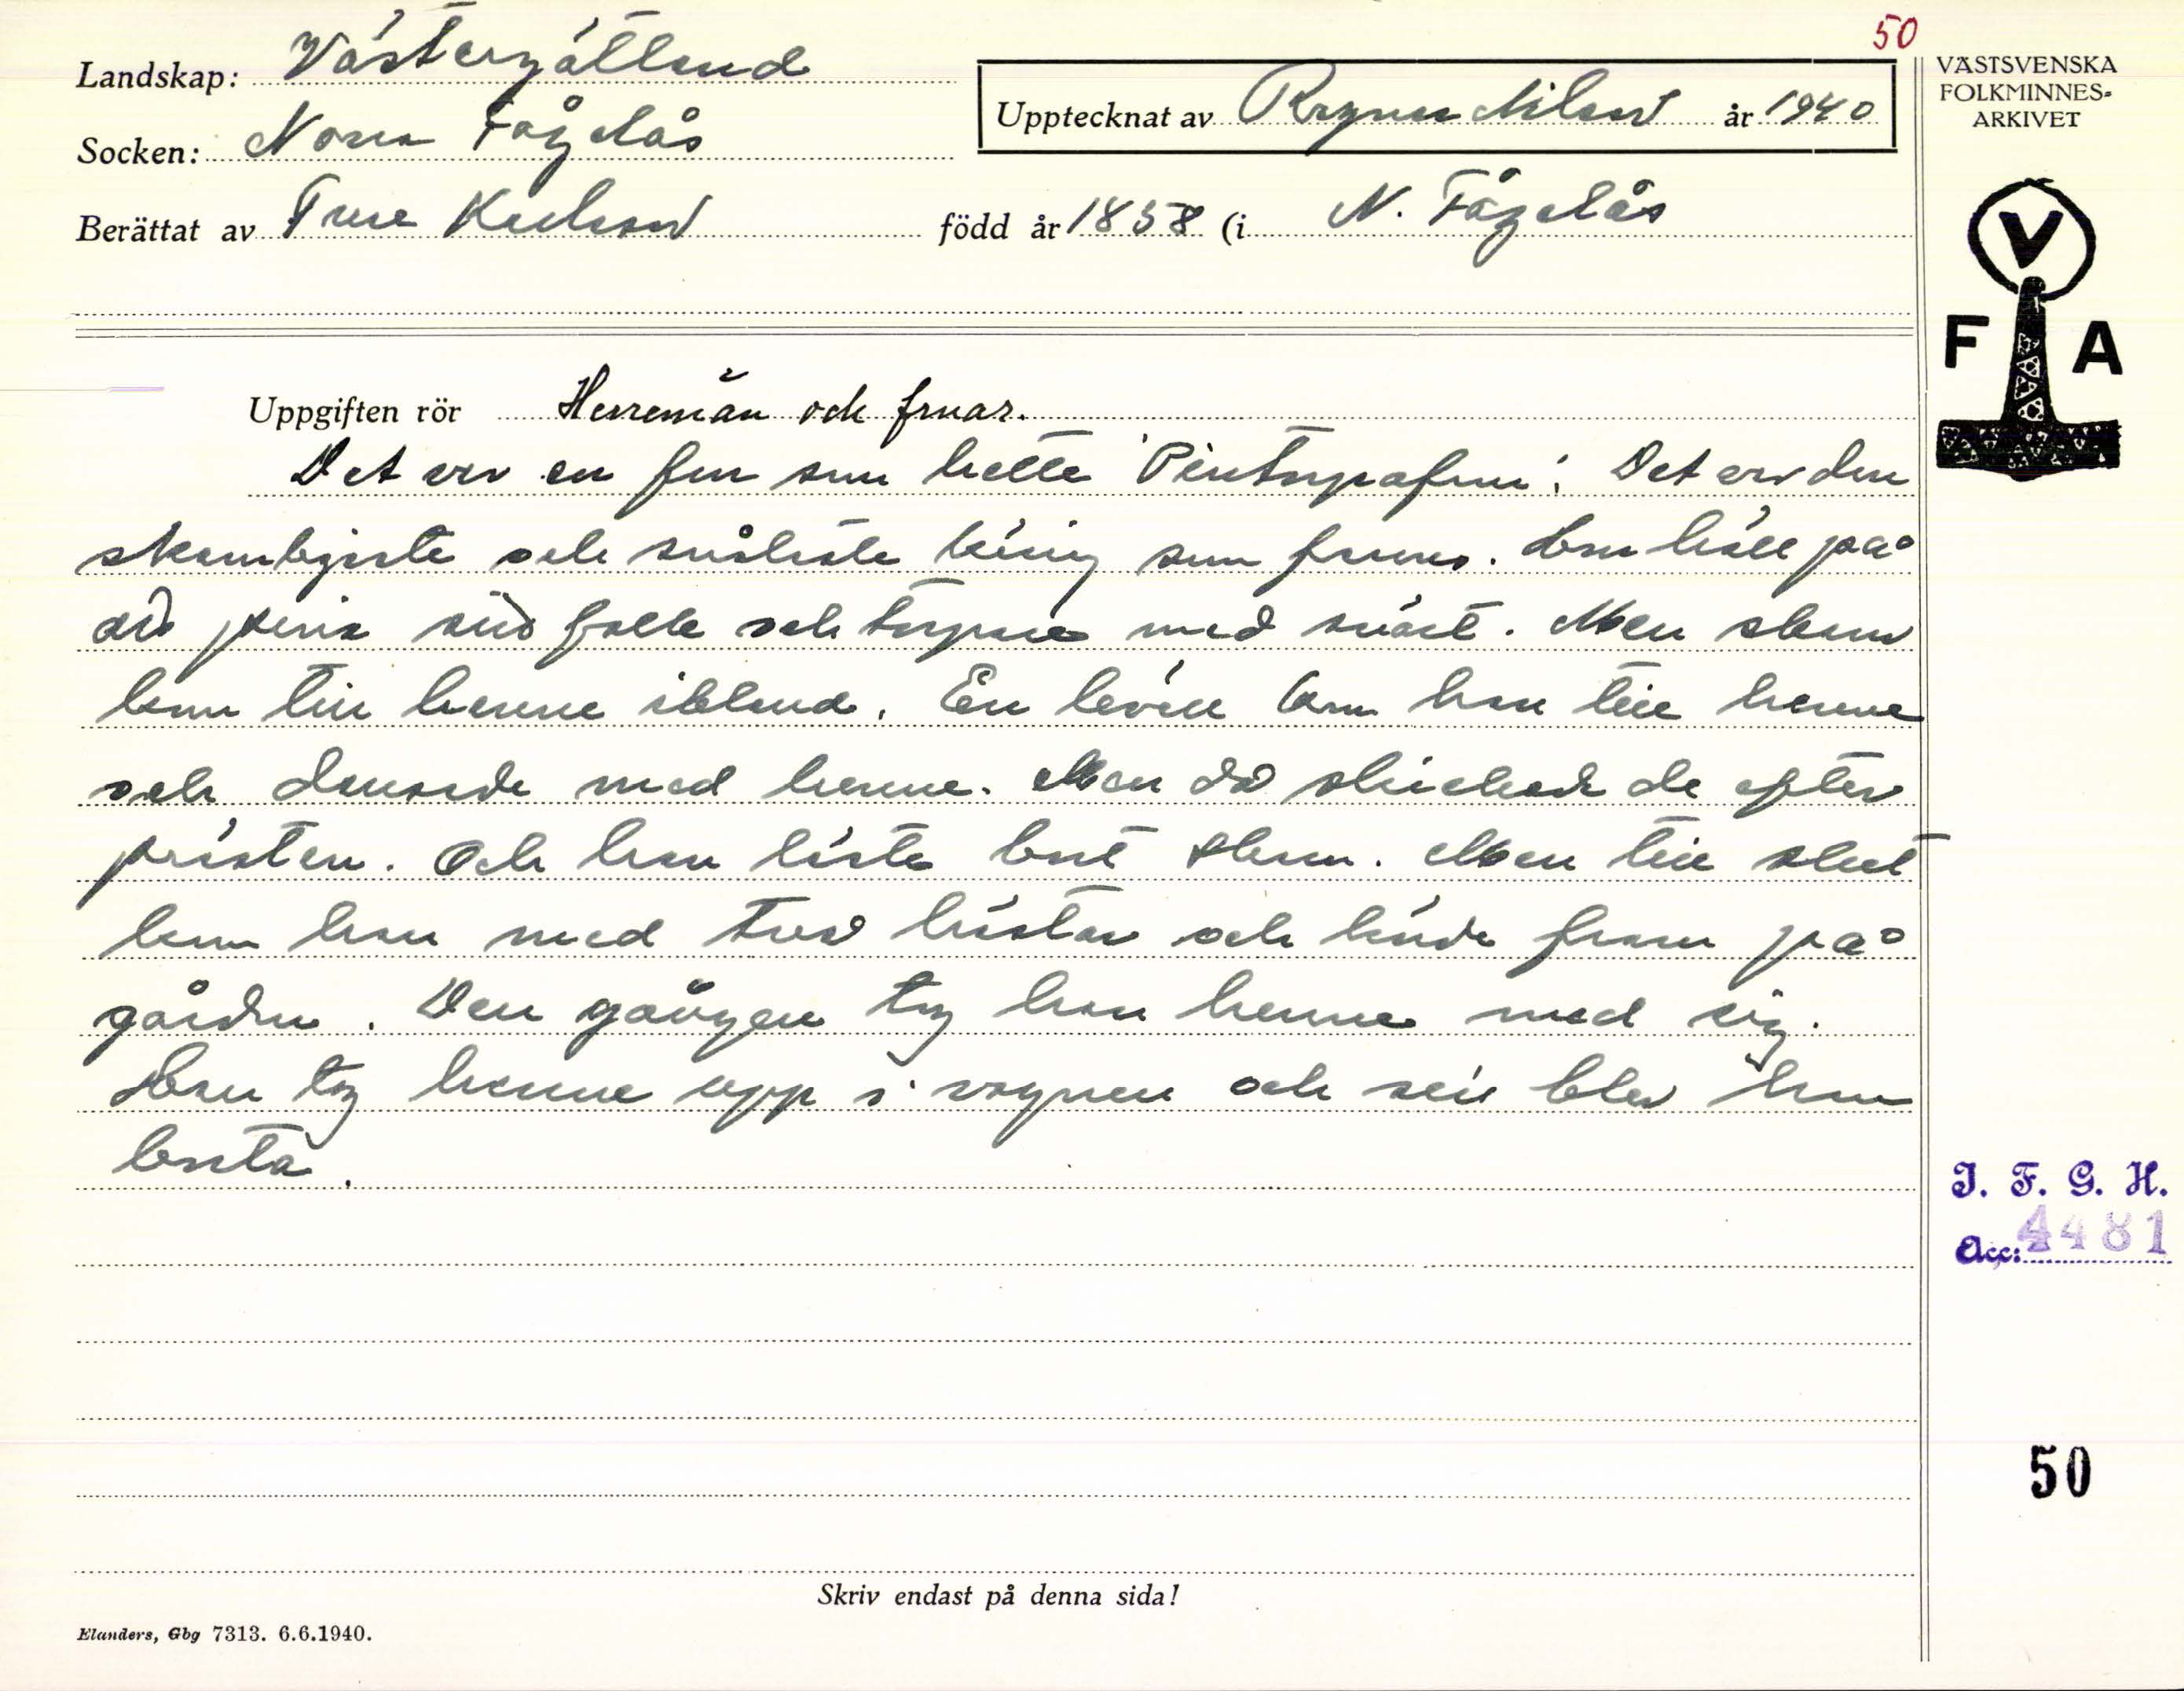 50
Landskap: Västergötland
VÄSTSVENSKA
FOLKMINNES-
ARKIVET
Upptecknat av Ragnar Nilson år 1940
Socken: Norra Fågelås
Berättat av Ture Karlson född år 1858 (i N. Fågelås
V
F A
Uppgiften rör Herremän och fruar.
Det var en fru som hette 'Pintorpafrun'. Det var den
skambjste och snålste käring som fanns. Hon höll på
och pina sitt folk och torpare med svält. Men skam
kom till henne ibland. En kväll kom han till henne
och dansade med henne. Men då skickade de efter
prästen. Och han läste bort skam. Men till slut
kom han med två hästar och körde fram på
gården. Den gången tog han henne med sig.
Han tog henne upp i vagnen och sen blev hon
borta.
I. F. G. H.
Acc: 4481
50
Skriv endast på denna sida!
Elanders, Gbg 7313. 6.6.1940.